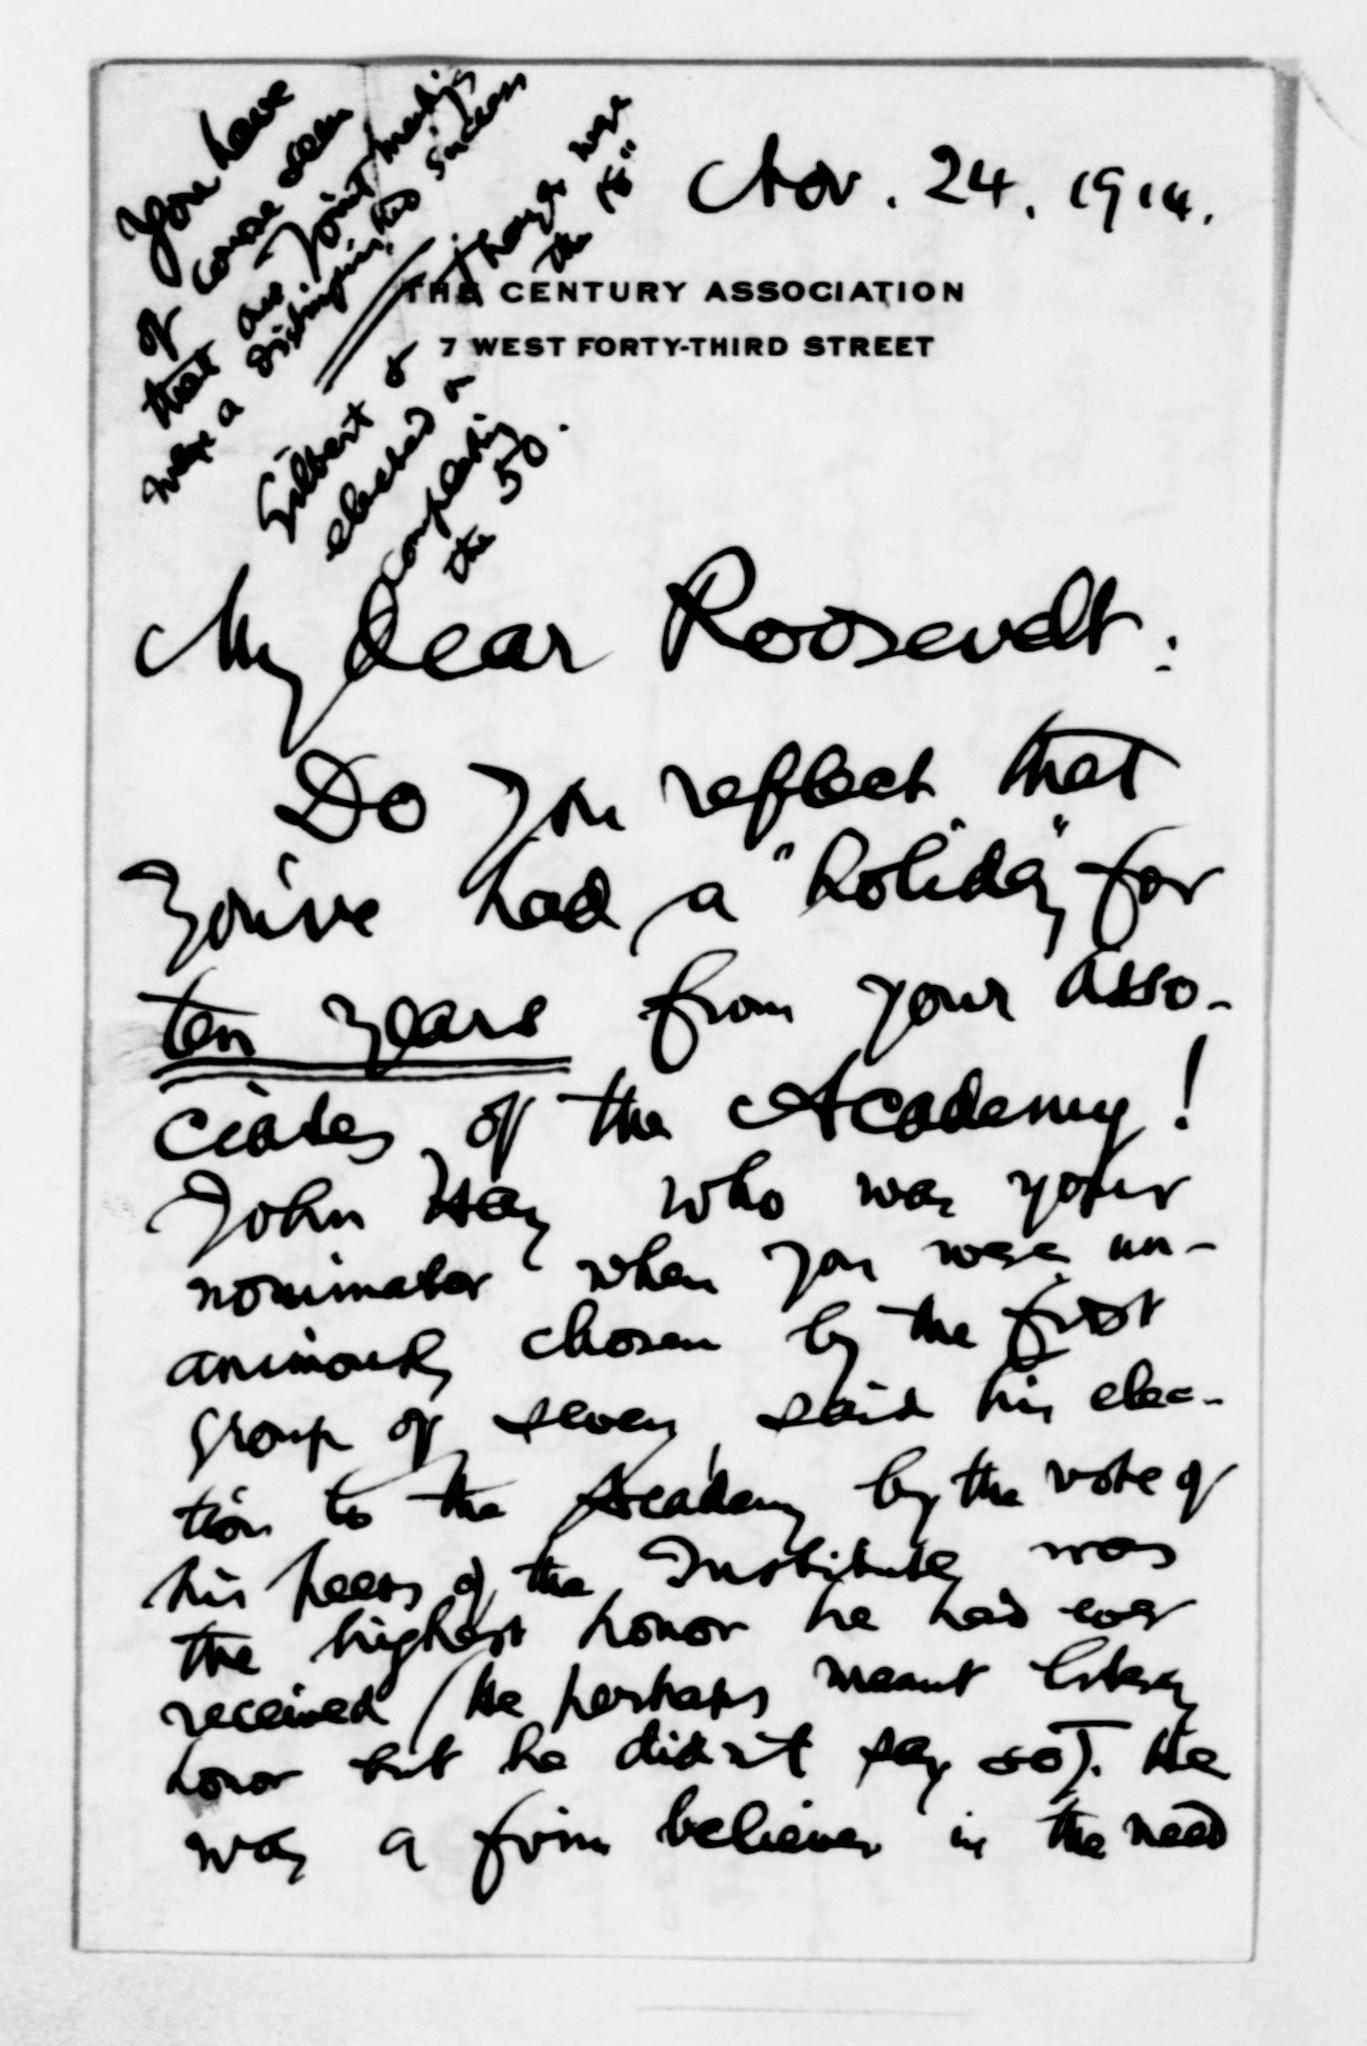 Nov. 24. 1914.
THE CENTURY ASSOCIATION
7 WEST FORTY-THIRD STREET
You have
of course seen
that our Joint meetings
were a distinguished success
Gilbert &
elected
completing
the 50.
My dear Roosevelt:
Do you reflect that
you've had a "holiday" for
ten years from your asso-
ciates of the Academy!
John Hay who was your
nominator when you were un-
animously chosen by the first
group of seven, said his elec-
tion to the Academy by the vote of
his peers of the Institute, was
the highest honor he had ever
received (He perhaps meant literary
honor but he didn't say so). He
was a firm believer in the need